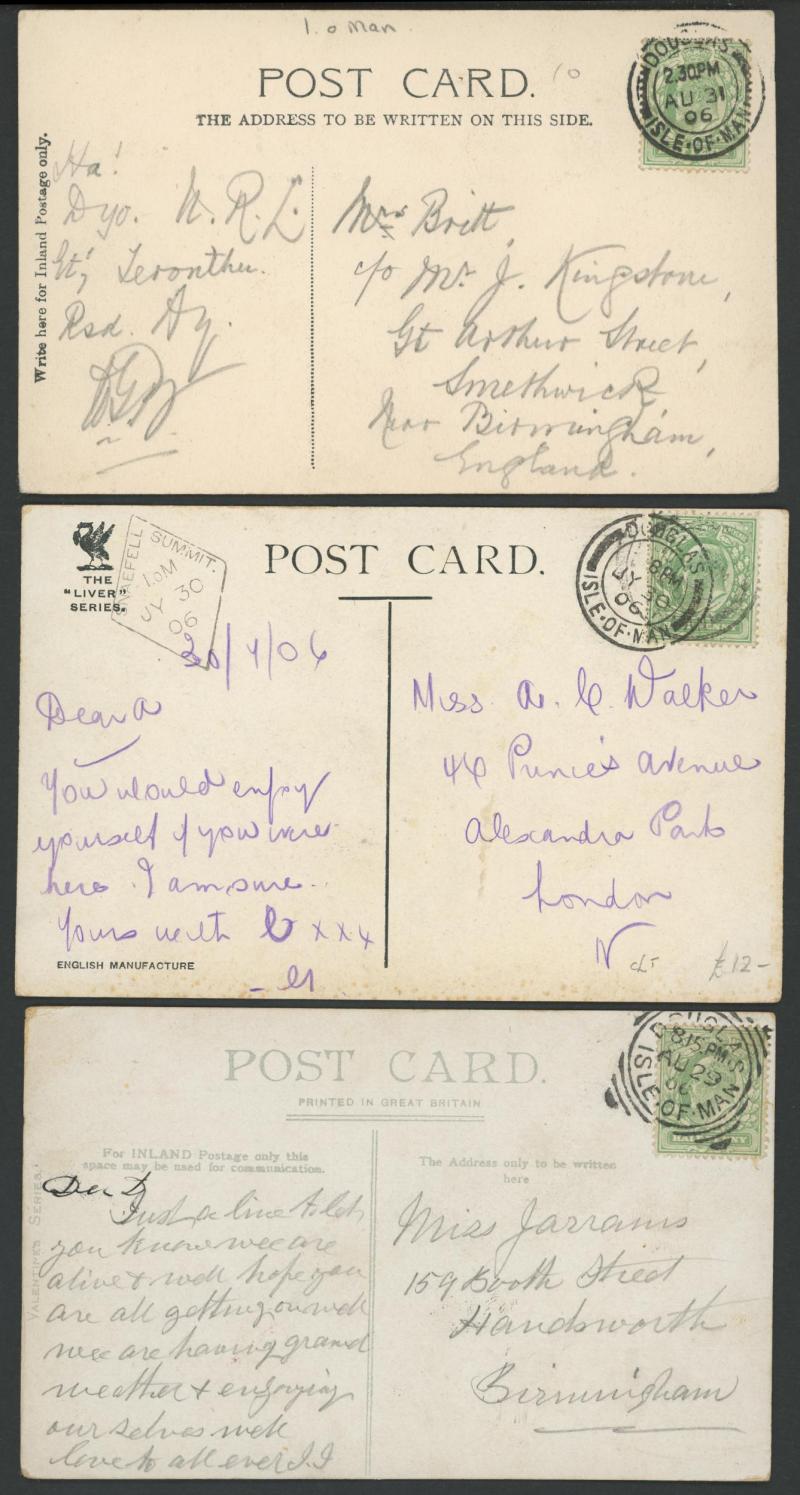 I. o Man
10
POST CARD.
THE ADDRESS TO BE WRITTEN ON THIS SIDE.
DOUGLAS
2.30PM
AU 31
06
ISLE·OF·MAN
Write here for Inland Postage only.
Ha!
Dyo. N. R. L.
Rsd. Ay.
Mrs Britt,
c/o Mr. J. Kingstone,
Gt Arthur Street,
Smethwick,
Near Birmingham,
England.
THE
"LIVER"
SERIES.
SNAEFELL SUMMIT.
I.OM
JY 30
06
POST CARD.
DOUGLAS
8PM
JY 30
06
ISLE·OF·MAN
30/7/06
Dear A
You would enjoy
yourself if you were
here I am sure.
Yours with L x x x
ENGLISH MANUFACTURE
Miss A. C. Walker
46 Prince's Avenue
Alexandra Park
London
N
£12-
POST CARD.
PRINTED IN GREAT BRITAIN
DOUGLAS
8.15 PM
AU 29
06
ISLE·OF·MAN
HALFPENNY
For INLAND Postage only this
space may be used for communication.
The Address only to be written
here
VALENTINES SERIES.
Dear D
Just a line to let
you know wee are
alive & well hope you
are all getting on well
wee are having grand
weather & enjoying
our selves well
love to all ever J.J
Miss Jarrams
159 Booth Street
Handsworth
Birmingham